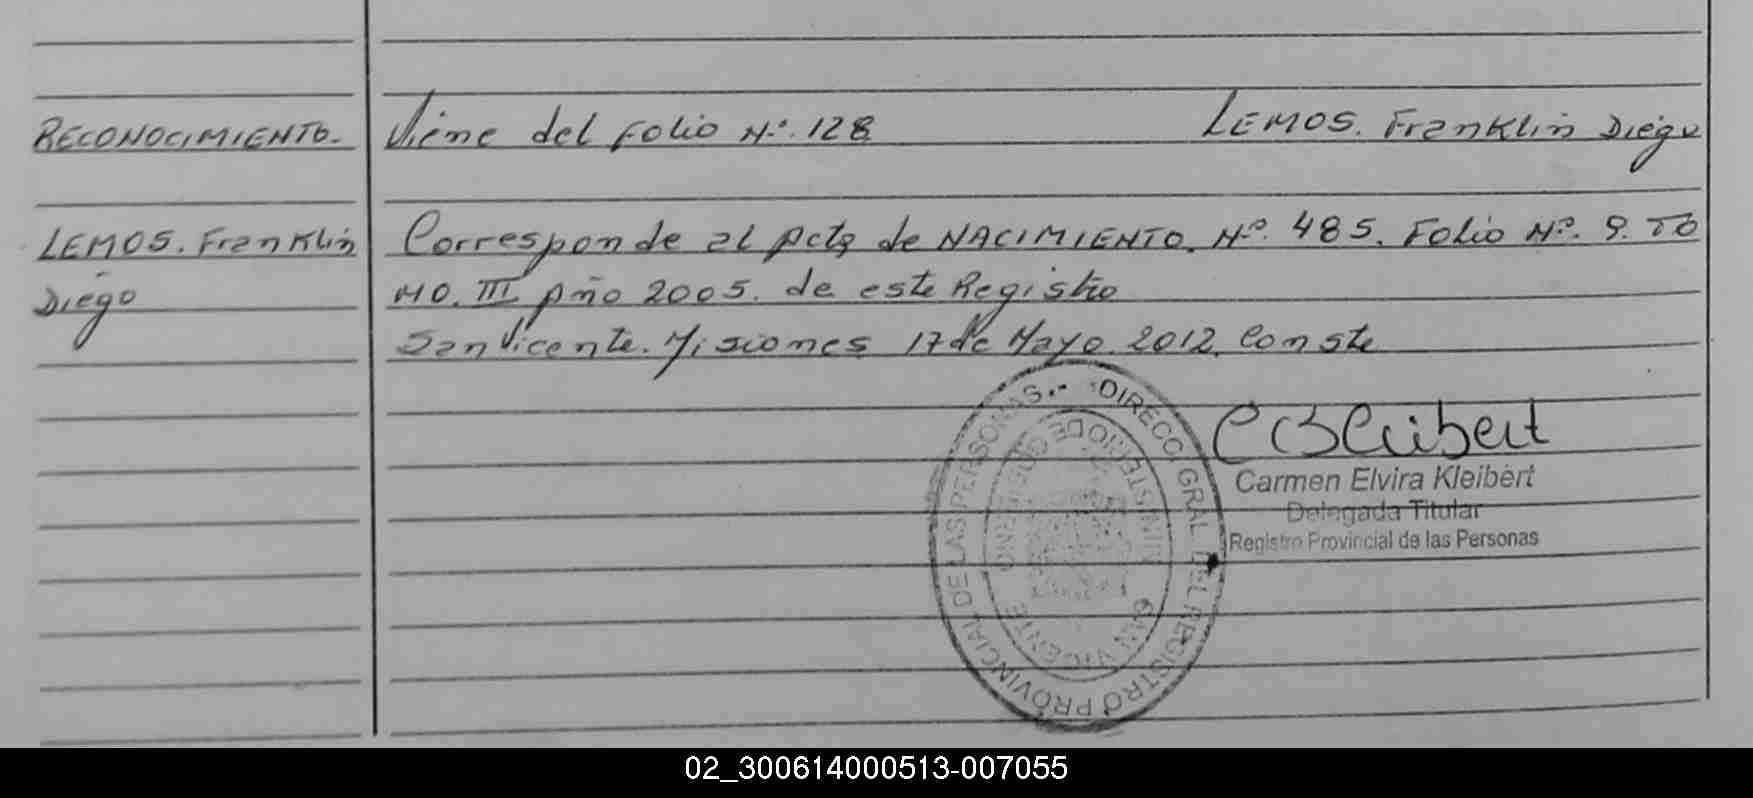 RECONOCIMIENTO.
LEMOS. Franklin
Diego
Viene del Folio Nº. 128 LEMOS. Franklin Diego
Corresponde al Acta de NACIMIENTO. Nº. 485. Folio Nº. 9. TO
MO. III Año 2005. de este Registro
San Vicente. Misiones 17 de Mayo. 2012. Conste
CEKleibert
Carmen Elvira Kleibert
Delegada Titular
Registro Provincial de las Personas
DIRECC. GRAL. DEL REGISTRO PROVINCIAL DE LAS PERSONAS.-
MINISTERIO DE GOBIERNO
SAN VICENTE
02_300614000513-007055